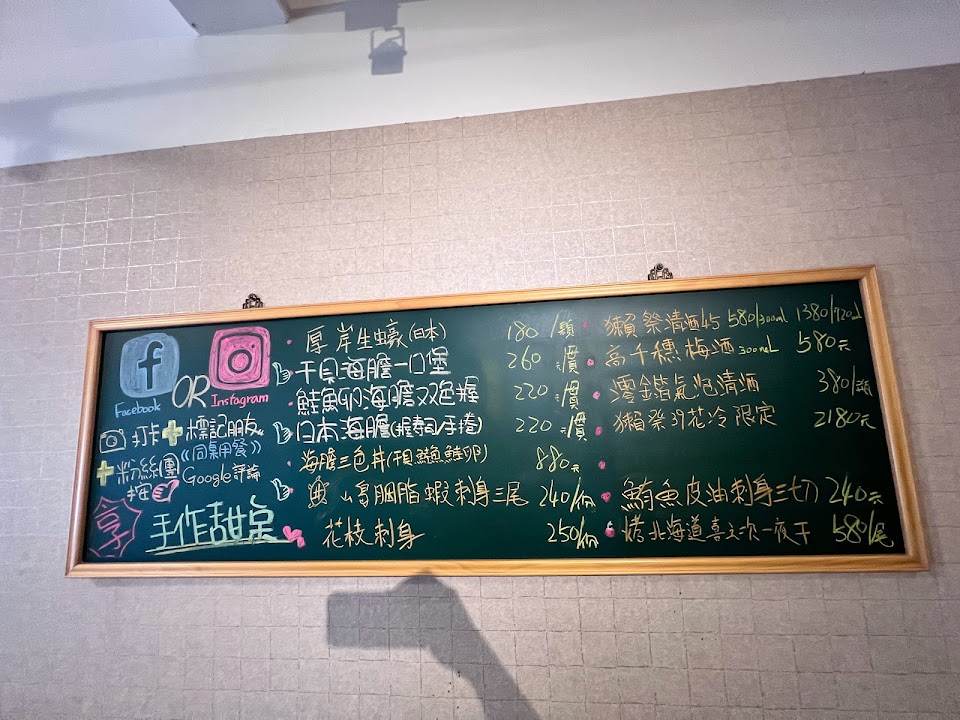 Facebook
OR
Instagram
打卡+標記朋友
《同桌用餐》
+粉絲團
Google評論
按
享
手作甜品
厚岸生蠔(日本) 180/顆
干貝海膽一口堡 260
鮭魚卵海膽双色握 220
日本海膽(握壽司/手捲) 220
海膽三色丼(干貝鮪魚鮭魚卵) 880元
胭脂蝦刺身三尾 240/份
花枝刺身 250/份
獺祭清酒45 580/300ml 1380/720ml
高千穗梅酒300ml 580元
澪鎧氣泡清酒 380/瓶
獺祭39花冷限定 2180元
鮪魚皮油刺身三切 240元
烤北海道喜之次一夜干 580/尾